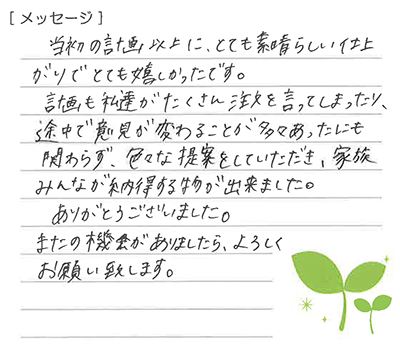 [メッセージ]
当初の計画以上に、とても素晴らしい仕上
がりでとても嬉しかったです。
計画も私達がたくさん注文を言ってしまったり、
途中で意見が変わることが多々あったにも
関わらず、色々な提案をしていただき、家族
みんなが納得する物が出来ました。
ありがとうございました。
またの機会がありましたら、よろしく
お願い致します。